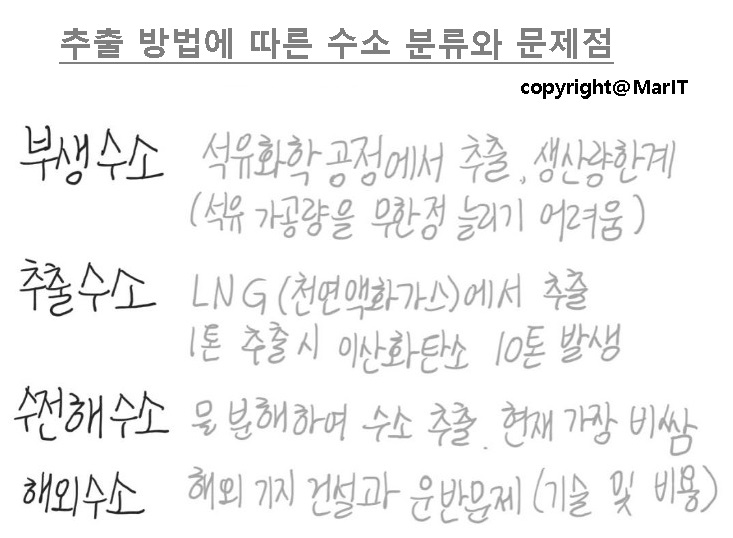 추출 방법에 따른 수소 분류와 문제점
copyright@MarIT
부생수소 석유화학 공정에서 추출, 생산량한계
(석유 가공량을 무한정 늘리기 어려움)
추출수소 LNG(천연액화가스)에서 추출
1톤 추출시 이산화탄소 10톤 발생
수전해수소 물 분해하여 수소 추출. 현재 가장 비쌈
해외수소 해외 기지 건설과 운반문제 (기술 및 비용)